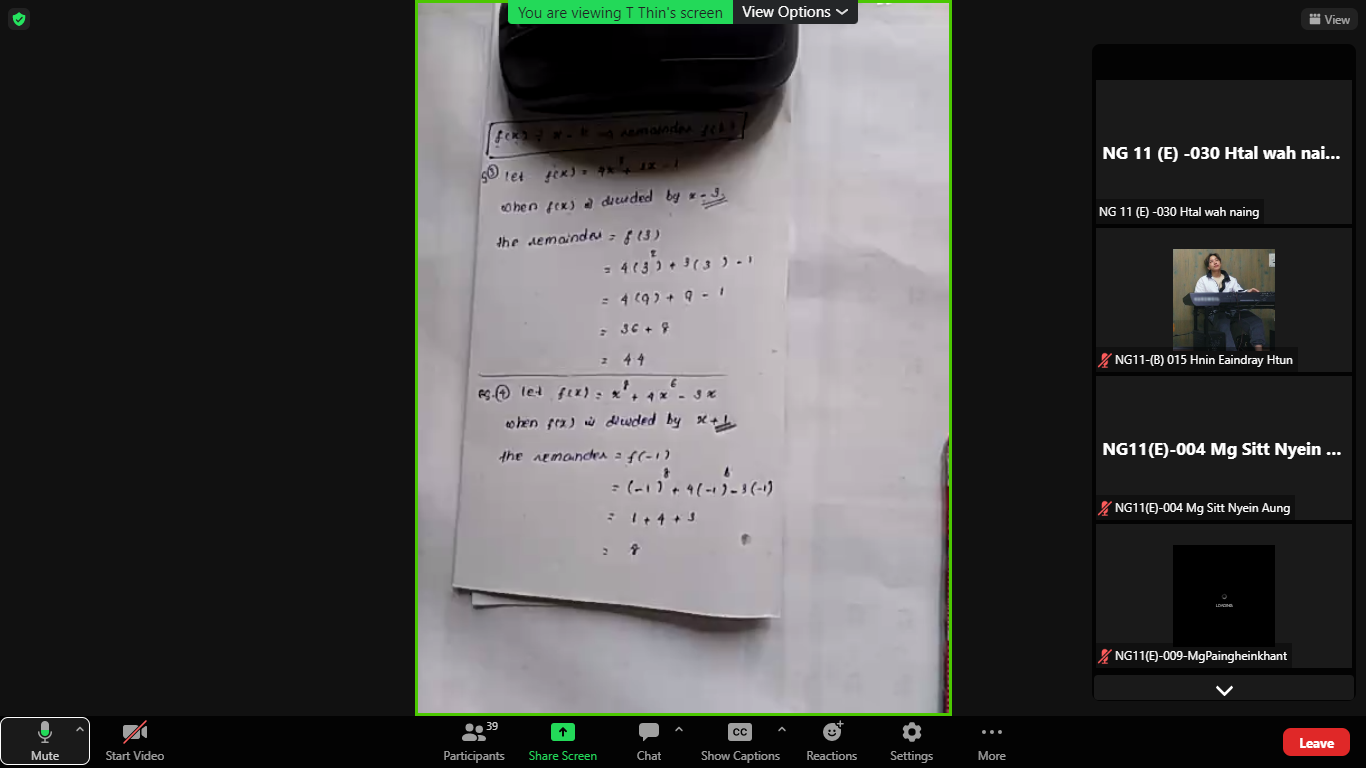 You are viewing T Thin's screen View Options
View
f(x) ÷ x - k → remainder f(k)
③ let f(x) = 4x² + 3x - 1
when f(x) is divided by x - 3
the remainder = f(3)
= 4(3²) + 3(3) - 1
= 4(9) + 9 - 1
= 36 + 8
= 44
eg. ④ let f(x) = x⁸ + 4x⁶ - 3x
when f(x) is divided by x+1
the remainder = f(-1)
= (-1)⁸ + 4(-1)⁶ - 3(-1)
= 1 + 4 + 3
= 8
NG 11 (E) -030 Htal wah nai...
NG 11 (E) -030 Htal wah naing
NG11-(B) 015 Hnin Eaindray Htun
NG11(E)-004 Mg Sitt Nyein ...
NG11(E)-004 Mg Sitt Nyein Aung
LOADING
NG11(E)-009-MgPaingheinkhant
Mute
Start Video
Participants 39
Share Screen
Chat
CC
Show Captions
Reactions
Settings
More
Leave